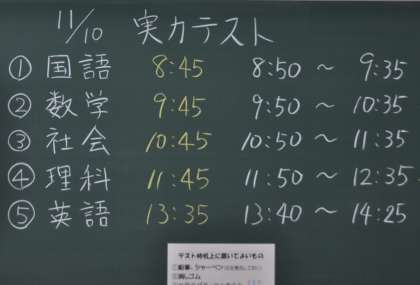 11/10 実力テスト
① 国語 8:45 8:50 ～ 9:35
② 数学 9:45 9:50 ～ 10:35
③ 社会 10:45 10:50 ～ 11:35
④ 理科 11:45 11:50 ～ 12:35
⑤ 英語 13:35 13:40 ～ 14:25
テスト時机上に置いてよいもの
①鉛筆、シャーペン
②消しゴム